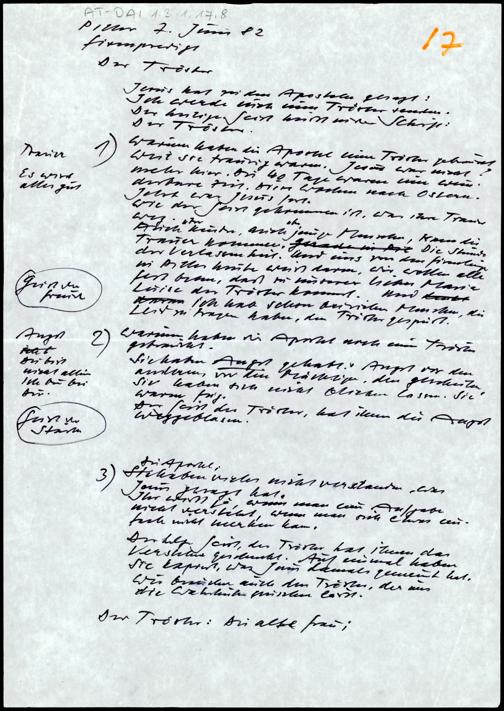 AT-DAI 1.2.1.17.8
17
7. Juni 82
Firmpredigt
Der Tröster
Jesus hat zu den Aposteln gesagt:
Ich werde euch einen Tröster senden.
Der Heilige Geist heißt in der Schrift:
Der Tröster.
Trauer
Es wird
alles gut
1) Warum haben die Apostel einen Tröster gebraucht?
Weil sie traurig waren. Jesus war nicht
mehr hier. Die 40 Tage waren eine wun-
derbare Zeit. Diese Wochen nach Ostern.
Jetzt war Jesus fort.
Wie der Geist gekommen ist, war ihre Trauer
weg.
Auch Kinder, auch junge Menschen, kann die
Trauer kommen. Die Stunde
der Verlassenheit. Und
fest beten, daß in unserer lieben Maria
Luise der Tröster kommt. Und
Ich hab schon bei vielen Menschen, die
Leid zu tragen haben, den Tröster gespürt.
Geist der
Freude
Angst
Du bist
nicht allein
Ich bin bei
dir.
Geist der
Stärke
2) Warum haben die Apostel noch einen Tröster
gebraucht?
Sie haben Angst gehabt. Angst vor den
anderen, vor den Mächtigen, den Gescheiten.
Sie haben sich nicht blicken lassen. Sie
waren feig.
Der Geist, der Tröster, hat ihnen die Angst
weggeblasen.
3) Die Apostel,
Sie haben vieles nicht verstanden, was
Jesus gesagt hat.
Ihr wißt ja wenn man eine Aufgabe
nicht versteht, wenn man sich etwas ein-
fach nicht merken kann.
Der hlg. Geist, der Tröster, hat ihnen das
Verstehen geschenkt. Auf einmal haben
sie kapiert, was Jesus damals gemeint hat.
Wir brauchen auch den Tröster, der uns
die Wahrheiten
Der Tröster: Die alte Frau;